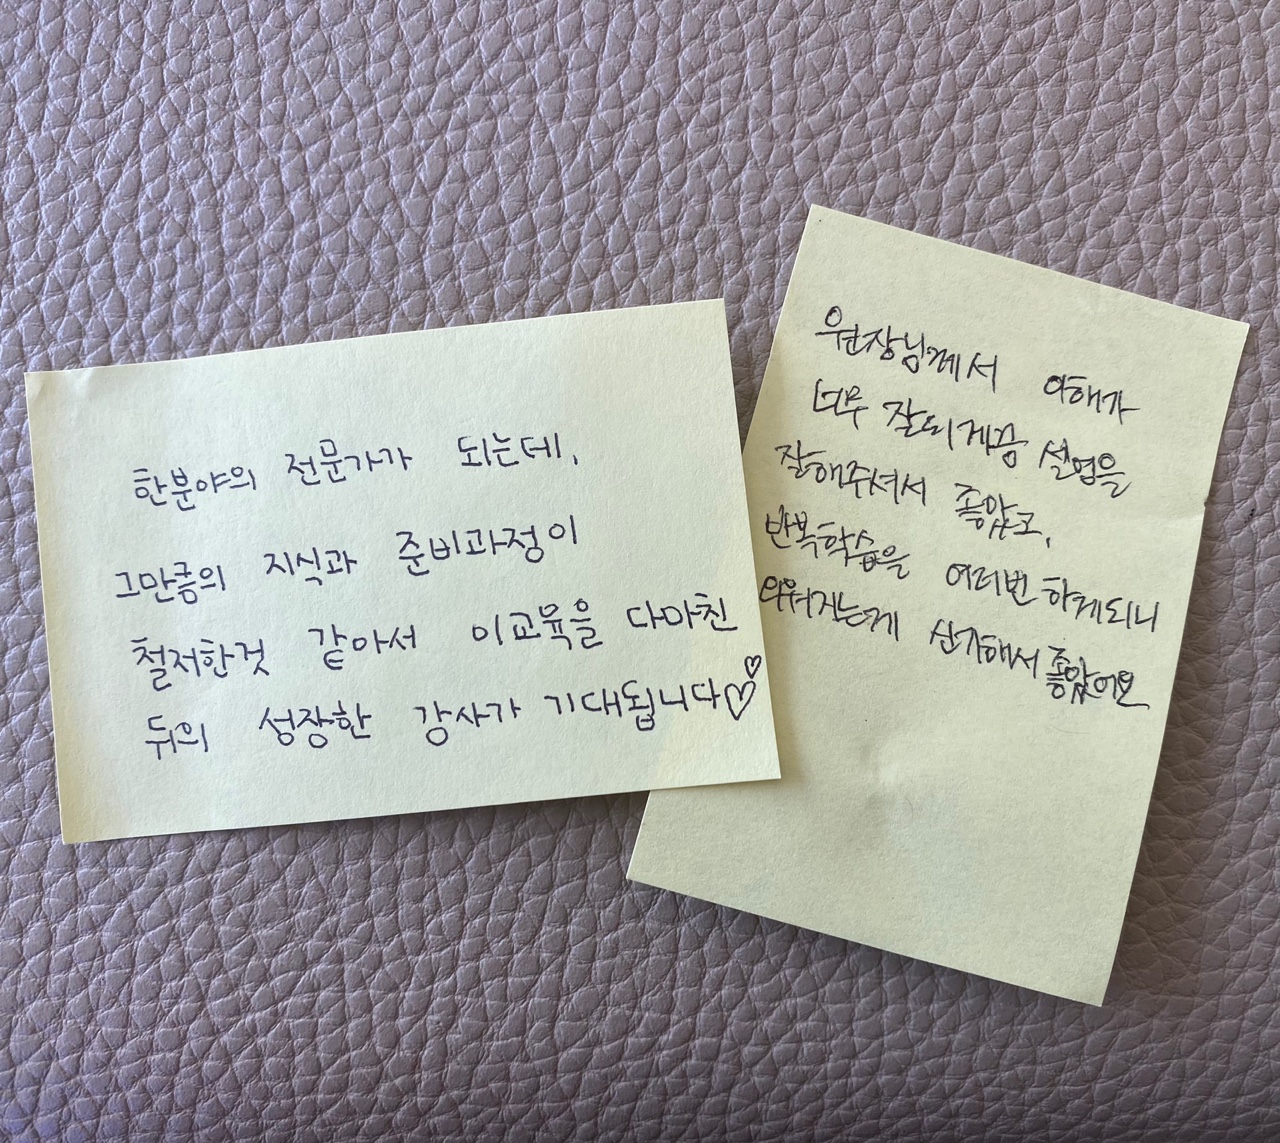 한분야의 전문가가 되는데,
그만큼의 지식과 준비과정이
철저한것 같아서 이교육을 다마친
뒤의 성장한 강사가 기대됩니다♡♡
원장님께서 이해가
너무 잘되게끔 설명을
잘해주셔서 좋았고,
반복학습을 여러번 하게되니
외워지는게 신기해서 좋았어요